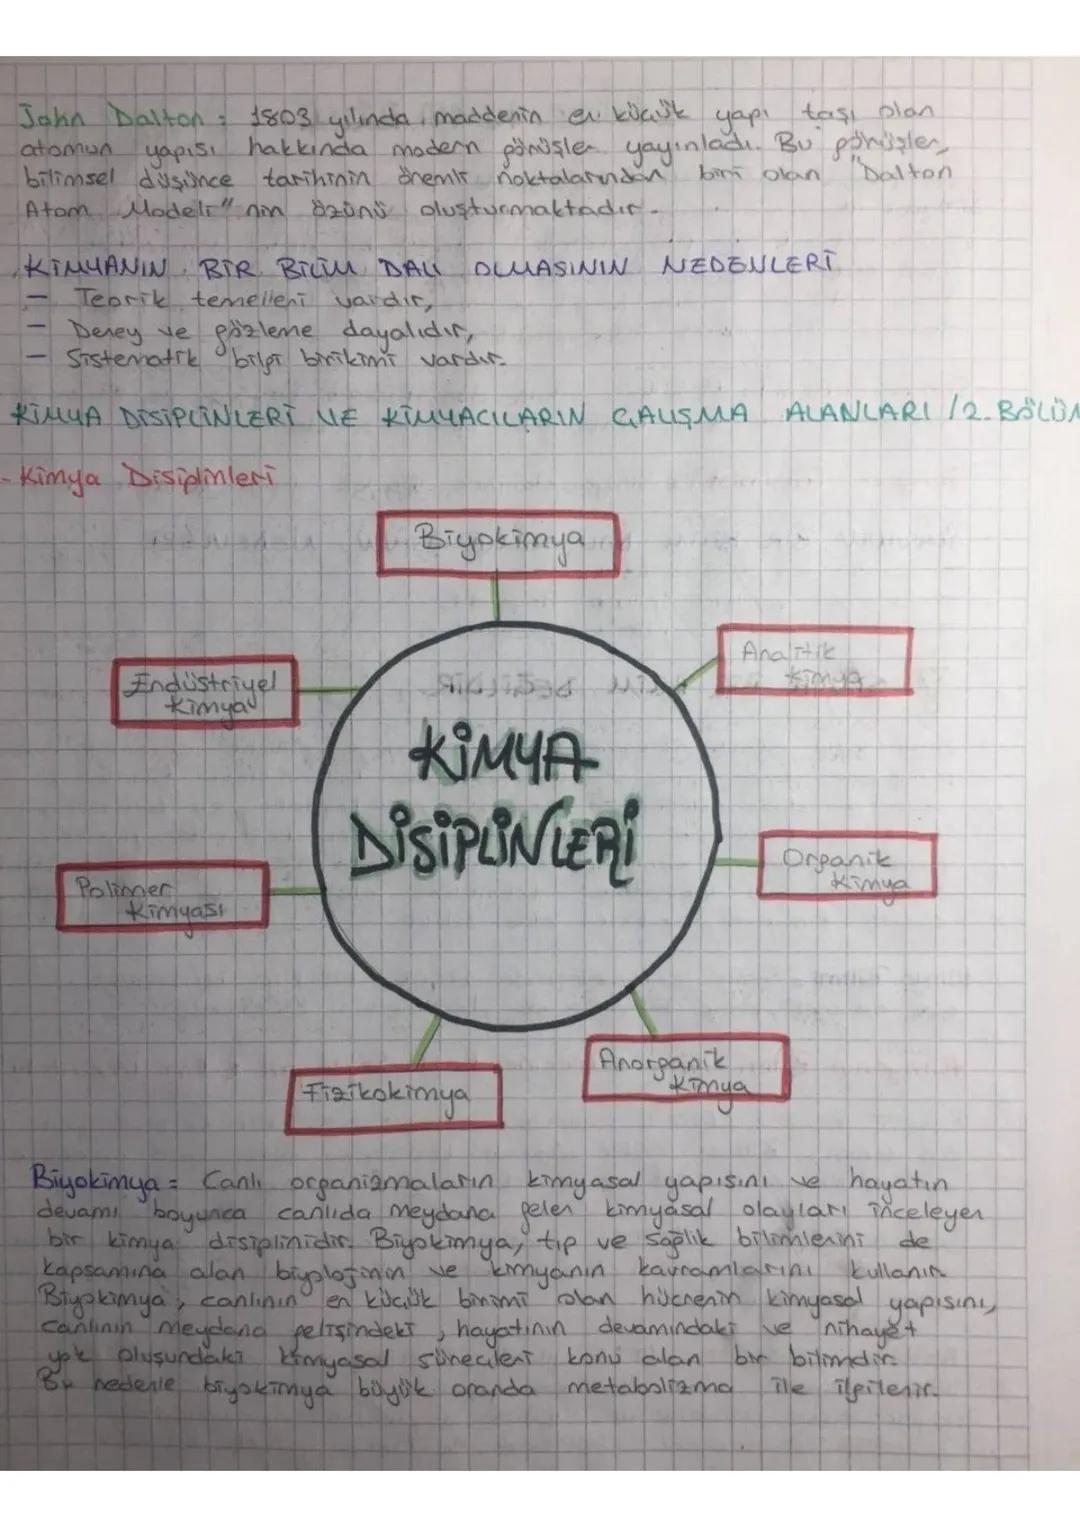 John Dalton : 1803 yılında, maddenin en küçük yapı taşı olan
atomun yapısı hakkında modern görüşler yayınladı. Bu görüşler,
bilimsel düşünce tarihinin önemli noktalarından biri olan "Dalton
Atom Modeli" nin özünü oluşturmaktadır.
KİMYANIN BİR BİLİM DALI OLMASININ NEDENLERİ
- Teorik temelleri vardır,
- Deney ve gözleme dayalıdır,
- Sistematik bilgi birikimi vardır.
KİMYA DİSİPLİNLERİ VE KİMYACILARIN ÇALIŞMA ALANLARI /2. BÖLÜM
- Kimya Disiplinleri
Biyokimya
Analitik
Kimya
Endüstriyel
Kimya
KİMYA
DİSİPLİNLERİ
Organik
Kimya
Polimer
Kimyası
Anorganik
Kimya
Fizikokimya
Biyokimya = Canlı organizmaların kimyasal yapısını ve hayatın
devamı boyunca canlıda meydana gelen kimyasal olayları inceleyen
bir kimya disiplinidir. Biyokimya, tıp ve sağlık bilimlerini de
kapsamına alan biyolojinin ve kimyanın kavramlarını kullanır.
Biyokimya, canlının en küçük birimi olan hücrenin kimyasal yapısını,
canlının meydana gelişindeki, hayatının devamındaki ve nihayet
yok oluşundaki kimyasal süreçleri konu alan bir bilimdir.
Bu nedenle biyokimya büyük oranda metabolizma ile ilgilenir.